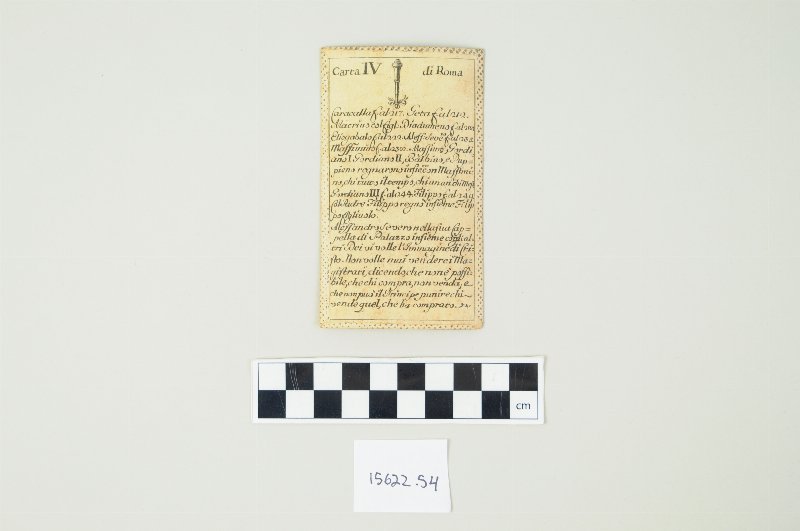 Carta IV di Roma
Caracalla f. al 217. Geta f. al 212.
Macrino col figl. Diadumeno f. al 218
Eliogabalo f. al 222. Aless. Seve f. al 235
Massimino f. al 238. Massimo, Gordi
ano I. Gordiano II, Balbino, e Pup
pieno regnarono insiem Massimi
no, chi tutto il tempo, chi
Gordiano III f. al 244. Filippo f. al 249
Padre Filippo regnò insieme Filip
po figliuolo.
Alessandro Severo nella sua Cap
pella di Palazzo insieme cogli al
tri Dei vi volle l'Immagine di Cri
sto. Non volle mai vendere i Ma
gistrati, dicendo, che non è possi
bile, che chi compra, non venda, e
che non può il Principe punire chi
vende quel, che ha comprato.
cm
15622.54